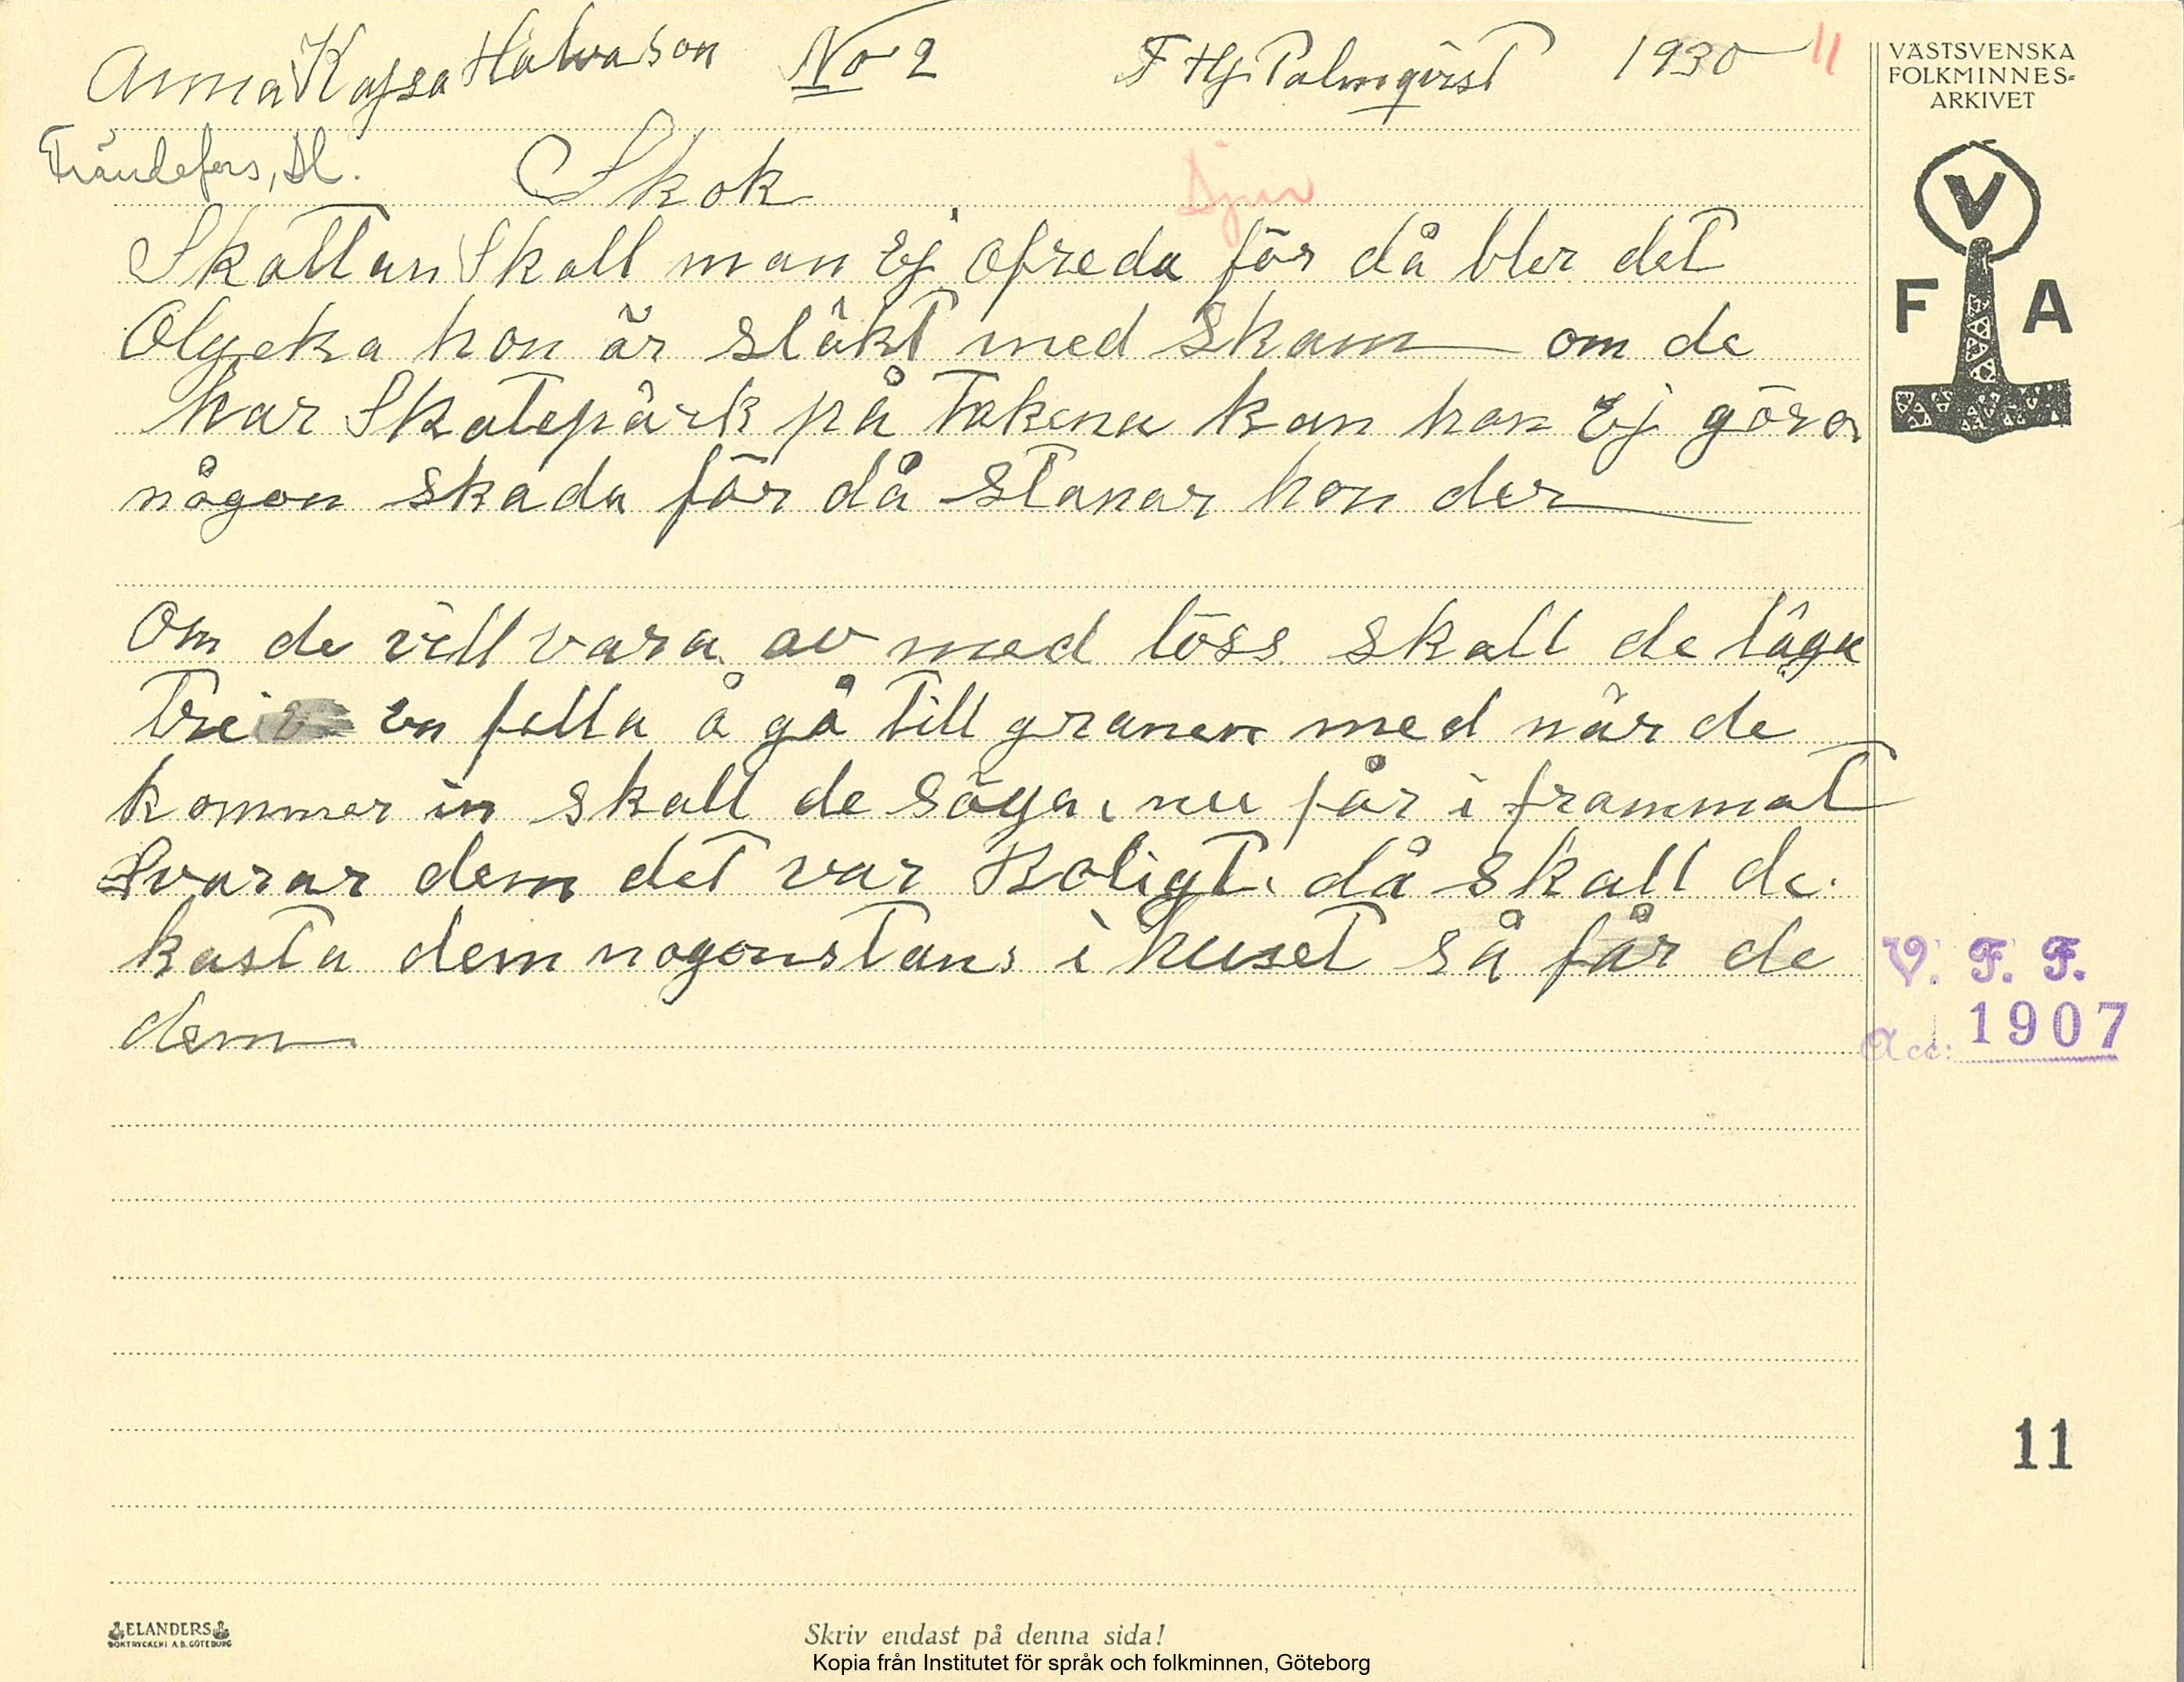 Anna Kajsa Halvason No 2 F Hj. Palmqvist 1930 11
VÄSTSVENSKA
FOLKMINNES=
ARKIVET
Frändefors, Dl. Skok Djur
Skattan Skall man Ej Ofreda för då bler det
Olycka hon är släkt med skam om de
har Skatepärk på Takena kan hon Ej göra
någon skada för då stanar hon der
V
F A
Om de vill vara av med löss skall de täga
Tre en fella å gå Till granen med när de
kommer in skall de säga, nu får i frammat
Svarar dem det var Roligt. då skall de
kasta dem nogonstans i huset så får de
dem
V. F. F.
Acc: 1907
11
ELANDERS
BOKTRYCKERI A.B. GÖTEBORG
Skriv endast på denna sida!
Kopia från Institutet för språk och folkminnen, Göteborg